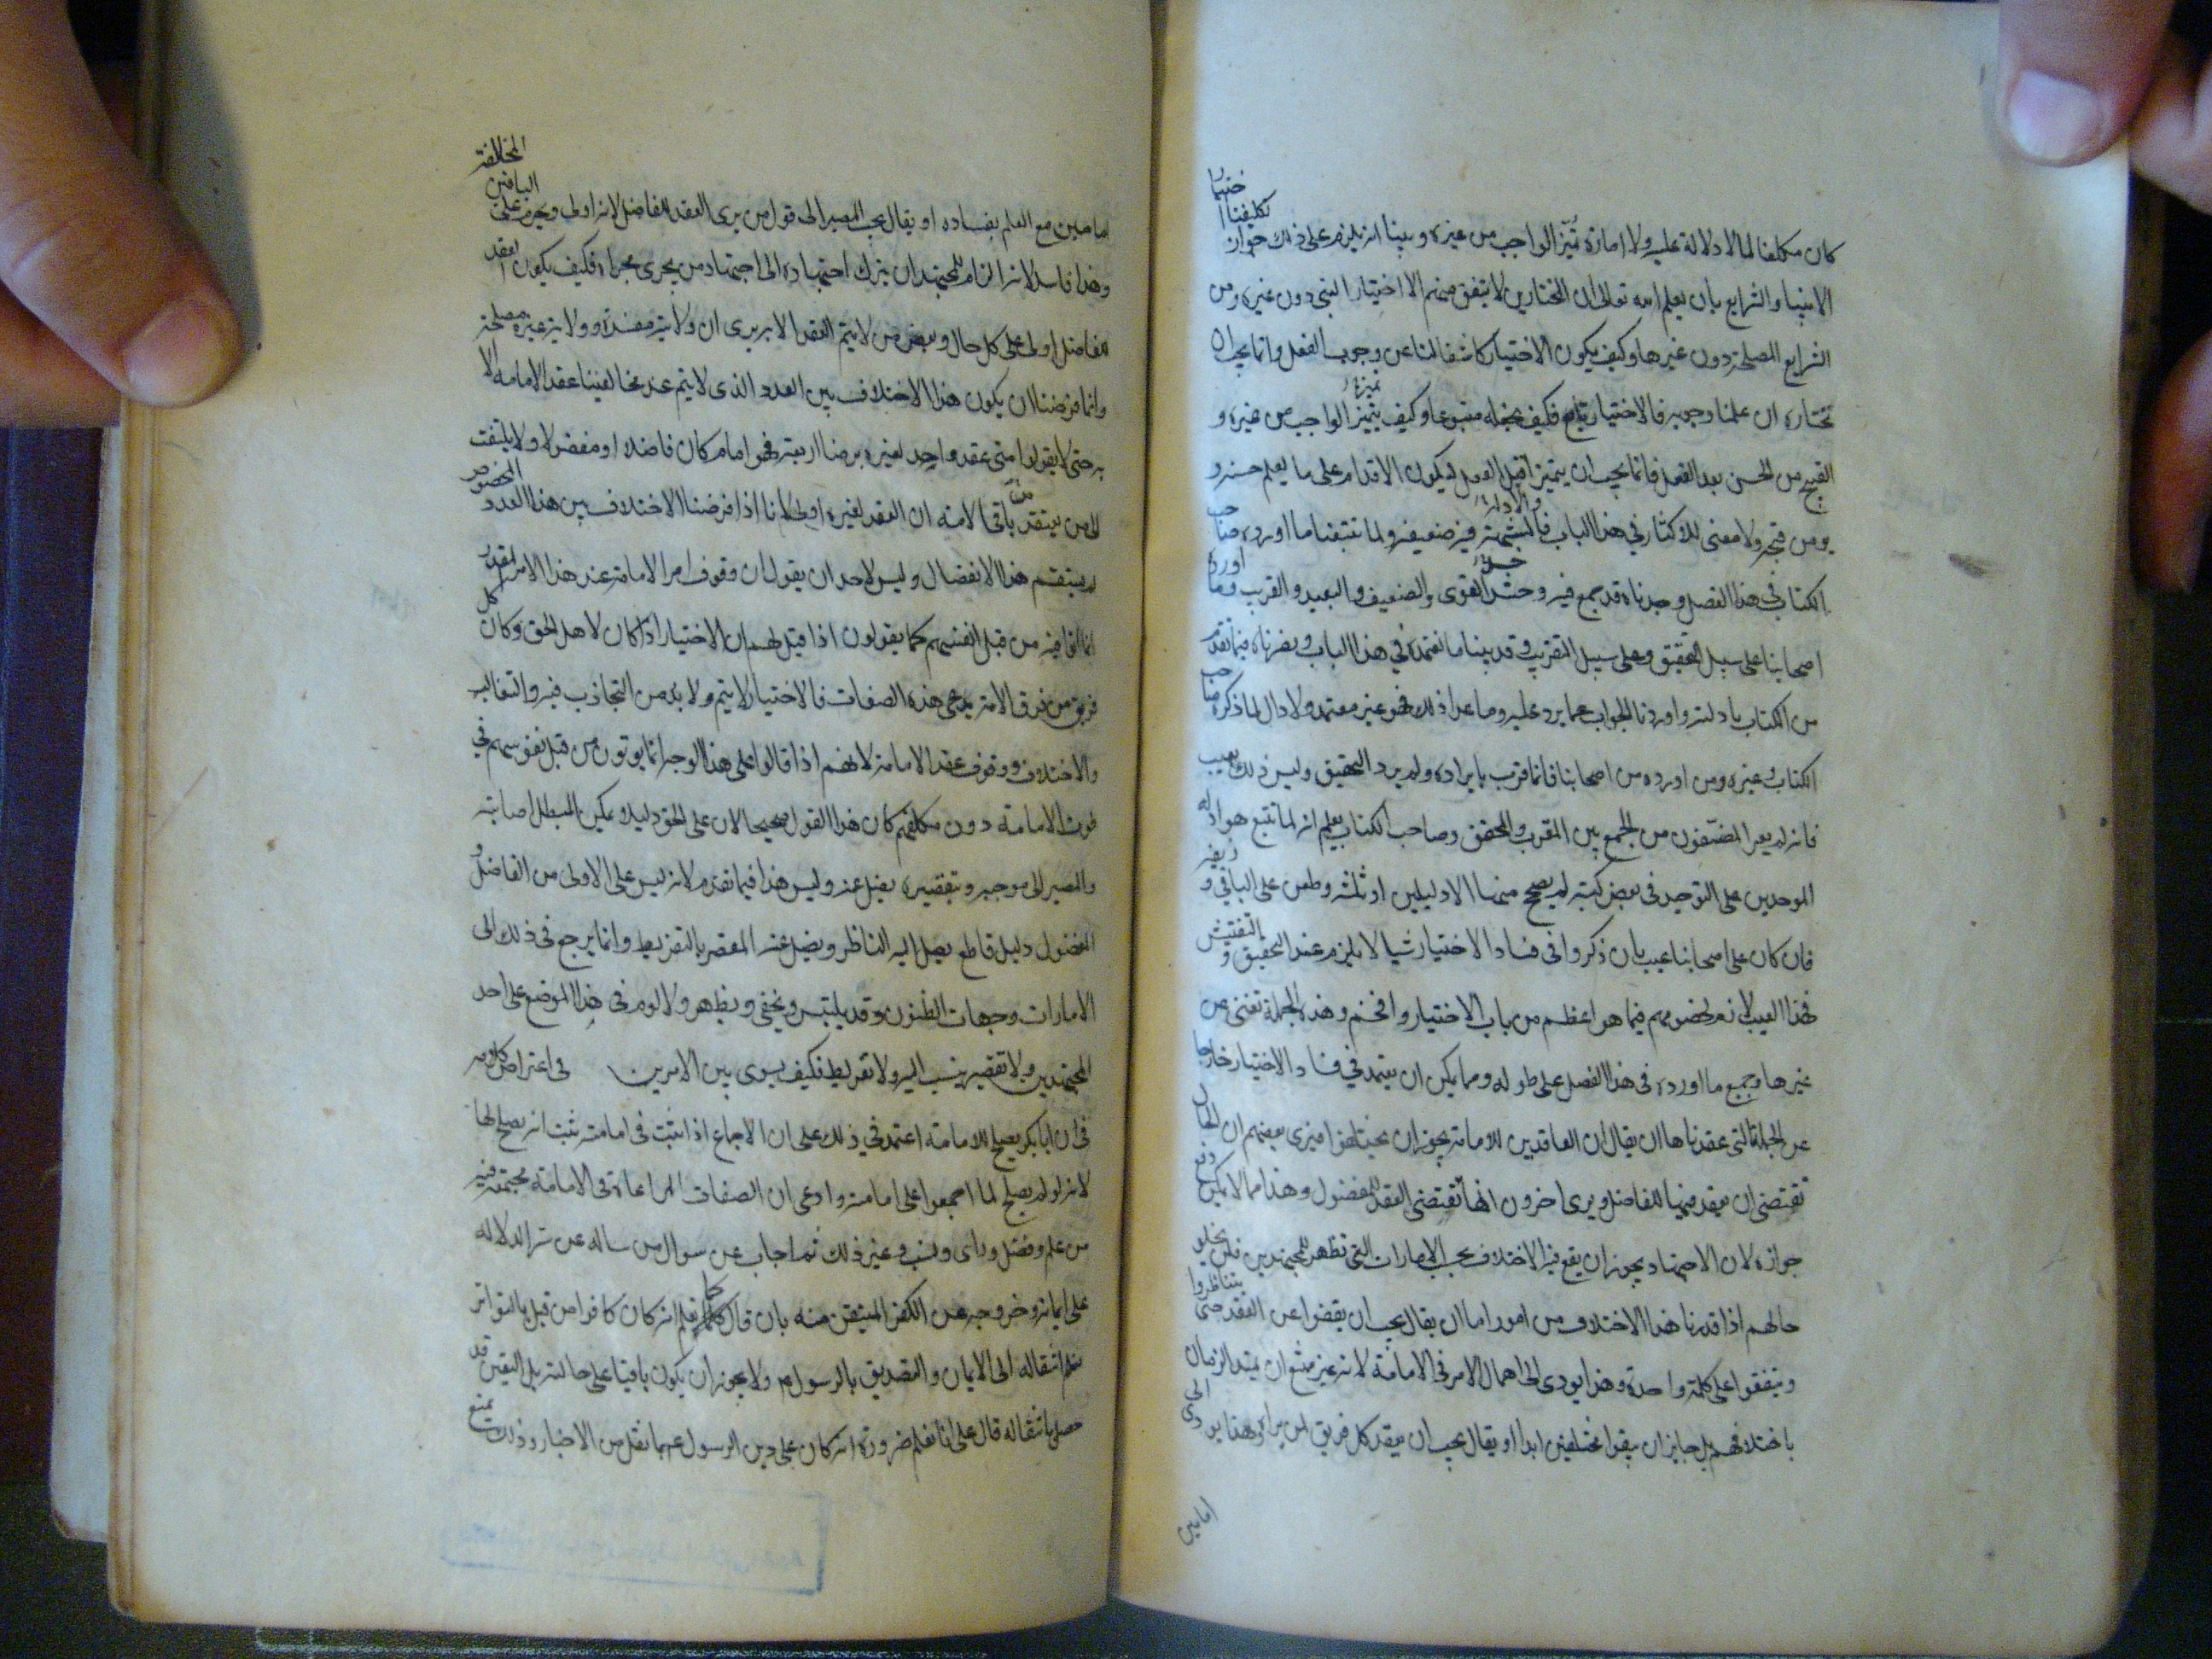 كان مكلفا لما لا دلالة عليه ولا امارة تميز الواجب من غيره وبينا انه يلزم على ذلك جواز تكليفنا اختيار
الانبياء والشرايع بان يعلم الله تعالى ان المختارين لا يتفق منهم الا اختيار النبي دون غيره ومن
الشرايع المصلحة دون غيرها وكيف يكون الاختيار كاشفا لنا عن وجوب الفعل وانما يجب ان
نختاره ان علمنا وجوبه فالاختيار تابع فكيف نجعله متبوعا وكيف يتميز الواجب من غيره و
القبيح من الحسن بعد الفعل فانما يجب ان يتميزا قبل الفعل ليكون الاقدام على ما يعلم حسنه و
يومن قبحه ولا معنى للاكثار في هذا الباب فالشبهة فيه ضعيفة ولما تتبعنا ما اورده صاحب
الكتاب في هذا الفصل وجدناه قد جمع فيه وحشد القوى والضعيف والبعيد والقريب وما اورده
اصحابنا على سبيل التحقيق وعلى سبيل التقريب وقد بينا ما نعتمده في هذا الباب ونصرناه فيما تقدم
من الكتاب بادلته واوردنا الجواب عما يرد عليه وما عدا ذلك فهو غير معتمد ولا دال لما ذكره صاحب
الكتاب وغيره ومن اورده من اصحابنا فانما قرب بايراده ولم يرد التحقيق وليس ذلك بعيب
فانه لم يعر المصنفون من الجمع بين المقرب والمحقق وصاحب الكتاب يعلم انه لما تتبع هو ادلة
الموحدين على التوحيد في بعض كتبه لم يصح منها الا دليلين او ثلثة وطعن على الباقي وزيفه
فان كان على اصحابنا عيب بان ذكروا في فساد الاختيار شيا لا يلزم عند التحقيق و التفتيش
فهذا العيب لازم لخصومهم فيما هو اعظم من باب الاختيار وافخم وهذه الجملة تغنى عن
غيرها وجميع ما اورده في هذا الفصل على طوله ومما يمكن ان يعتمد في فساد الاختيار خارجا
عن الجملة التي عقدناها ان يقال ان العاقدين للامامة يجوز ان يختلفوا فيرى بعضهم ان الحال
تقتضى ان يعقد فيها للفاضل ويرى اخرون انها تقتضى العقد للمفضول وهذا مما لا يمكن دفع
جوازه لان الاجتهاد يجوز ان يقع فيه الاختلاف بحسب الامارات التي تظهر للمجتهدين فليس يخلو
حالهم اذا قدرنا هذا الاختلاف من امور اما ان يقال يجب ان يقفوا عن العقد حتى يتناظروا
ويتفقوا على كلمة واحدة وهذا يودى الى اهمال الامر في الامامة لانه غير ممتنع ان يمتد الزمان
باختلافهم بل جايز ان يبقوا مختلفين ابدا او يقال يجب ان يعقد كل فريق لمن يراه وهذا يودى الى
امامين
امامين مع العلم بفساده او يقال يجب المصير الى قول من يرى العقد للفاضل لانه اولى ويحرم على الباقين المخالفة
وهذا فاسد لانه الزام للمجتهد ان يترك اجتهاده الى اجتهاد من يجرى مجراه فكيف يكون العقد
للفاضل اولى على كل حال وبعض من لا يتم العقد الا به يرى ان ولايته مفسدة وولاية غيره مصلحة
وانما فرضنا ان يكون هذا الاختلاف بين العدد الذى لا يتم عند مخالفينا عقد الامامة الا
به حتى لا يقولوا متى عقد واحد لغيره برضا اربعة فهو امام كان فاضلا او مفضولا ولا يلتفت
الى من يعتقد من باقى الامة ان العقد لغيره اولى لانا اذا فرضنا الاختلاف بين هذا العدد المخصوص
لم يستقم هذا الانفصال وليس لاحد ان يقول ان وقوف امر الامامة عند هذا الامر المقدر
انما اتوا فيه من قبل انفسهم كما يقولون اذا قيل لهم ان الاختيار اذا كان لاهل الحق وكان كل
فريق من فرق الامة يدعى هذه الصفات فالاختيار لا يتم ولا بد من التجاذب فيه والتغالب
والاختلاف ووقوف عقد الامامة لانهم اذا قالوا على هذا الوجه انما يوتون من قبل نفوسهم في
فوت الامامة دون مكلفهم كان هذا القول صحيحا لان على الحق دليلا يمكن المبطل اصابته
والمصير الى موجبه وبتقصيره يضل عنه وليس هذا فيما تقدم لانه ليس على الاولى من الفاضل و
المفضول دليل قاطع يصل اليه الناظر ويضل عنه المقصر بالتفريط وانما يرجع في ذلك الى
الامارات وجهات الظنون وقد يلتبس ويخفى ويظهر ولا لوم في هذا الموضع على احد
المجتهدين ولا تقصير ينسب اليه ولا تفريط فكيف يسوى بين الامرين في اعتراض كلامه
في ان ابا بكر يصلح للامامة اعتمد في ذلك على ان الاجماع اذا ثبت في امامته ثبت انه يصلح لها
لانه لو لم يصلح لما اجمعوا على امامته وادعى ان الصفات المراعاة في الامامة مجتمعة فيه
من علم وفضل وراى ونسب وغير ذلك ثم اجاب عن سوال من ساله عن الدلالة
على ايمانه وخروجه عن الكفر المتيقن منه بان قال كما نعلم انه كان كافرا من قبل بالتواتر
نعلم انتقاله الى الايمان والتصديق بالرسول م ولا يجوز ان يكون باقيا على حالته بل اليقين قد
حصل بانتقاله قال على انا نعلم ضرورة انه كان على دين الرسول ع بما نقل من الاخبار وذلك يمنع